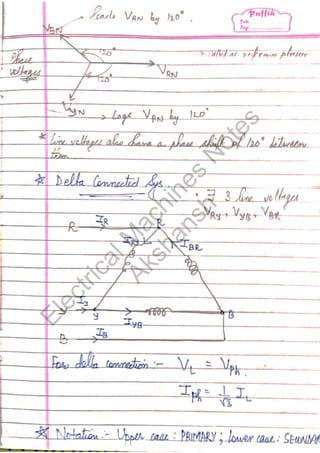 Puffin
Date
Page
V_BN → Leads V_RN by 120°.
120°
→ reference phasor
Phase
voltages
V_RN
120°
V_YN → Lags V_RN by 120°
* Line voltages also have a phase shift of 120° between
them.
* Delta Connected Sys.
• ∃ 3 line voltages
V_RY, V_YB, V_BR
R I_R R
I_RY I_BR
I_y
y y B
I_YB
B I_B
For delta connection :- V_L = V_Ph.
I_Ph = 1/√3 I_L
* Notation :- Upper case : PRIMARY ; Lower case : SECONDAR
Electrical Machines Notes
Akshansh